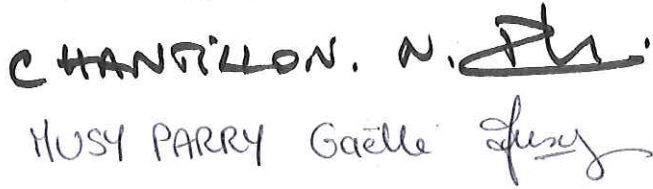 CHANTILLON. N.
MUSY PARRY Gaëlle